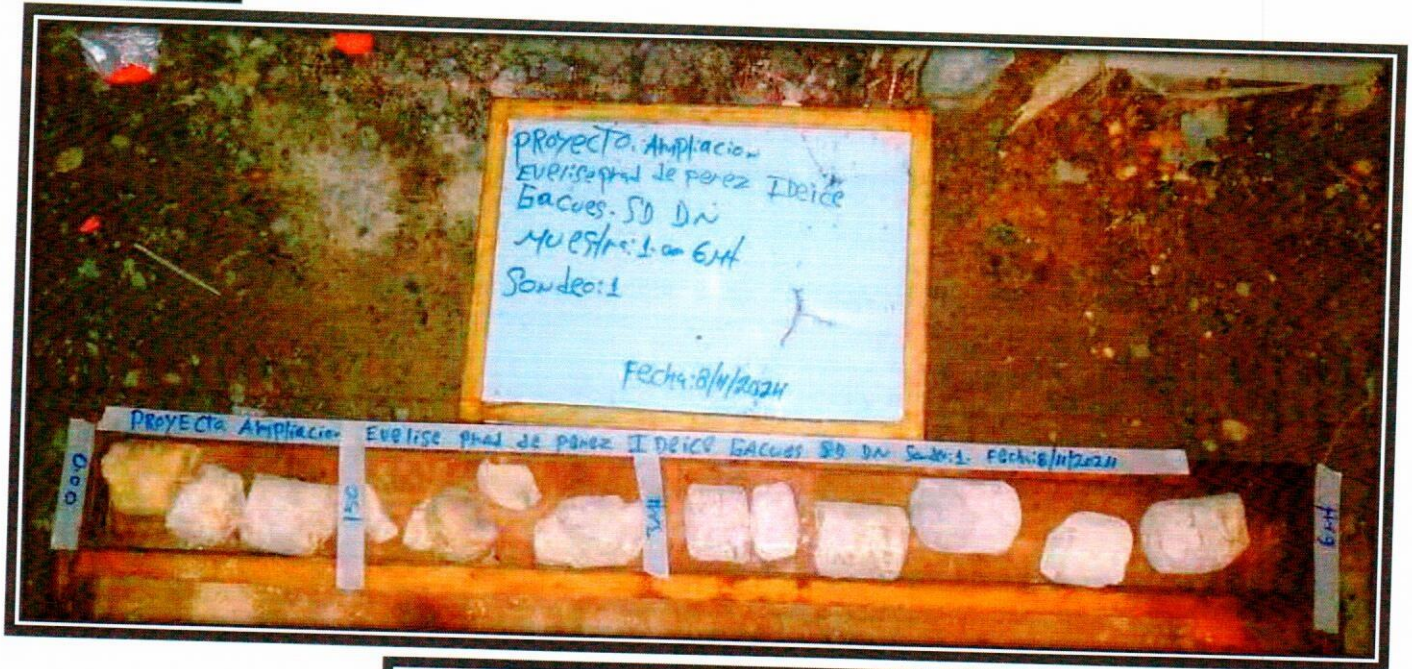 PROYECTO. Ampliacion
Evelise prad de perez IDeice
Gacues. SD DN
Muestra: 1. 6Mt
Sondeo: 1
Fecha: 8/11/2024
PROYECTO Ampliacion Evelise prad de perez IDeice GACUES SD DN Sondeo: 1. Fecha: 8/11/2024
0.00
6Mt